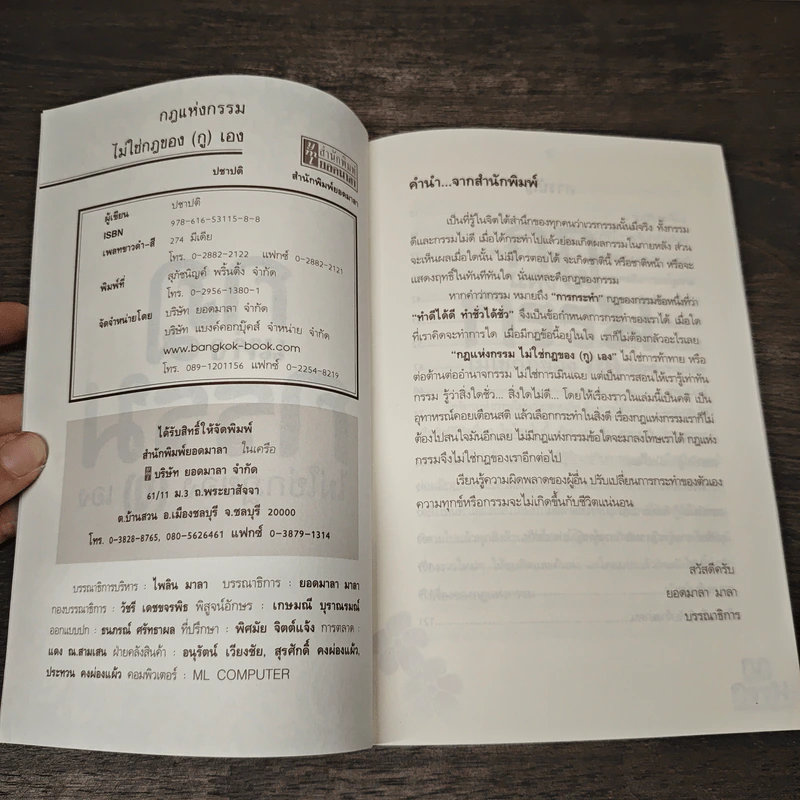 กฎแห่งกรรม
ไม่ใช่กฎของ (กู) เอง
ปชาปติ
สำนักพิมพ์
ยอดมาลา
สำนักพิมพ์ยอดมาลา
ผู้เขียน ปชาปติ
ISBN 978-616-53115-8-8
เพลทขาวดำ-สี 274 มีเดีย
โทร. 0-2882-2122 แฟกซ์ 0-2882-2121
พิมพ์ที่ สุภัชนิญค์ พริ้นติ้ง จำกัด
โทร. 0-2956-1380-1
จัดจำหน่ายโดย บริษัท ยอดมาลา จำกัด
บริษัท แบงค์คอกบุ๊คส์ จำหน่าย จำกัด
www.bangkok-book.com
โทร. 089-1201156 แฟกซ์ 0-2254-8219
ได้รับสิทธิ์ให้จัดพิมพ์
สำนักพิมพ์ยอดมาลา ในเครือ
บริษัท ยอดมาลา จำกัด
61/11 ม.3 ถ.พระยาสัจจา
ต.บ้านสวน อ.เมืองชลบุรี จ.ชลบุรี 20000
โทร. 0-3828-8765, 080-5626461 แฟกซ์ 0-3879-1314
บรรณาธิการบริหาร : ไพลิน มาลา บรรณาธิการ : ยอดมาลา มาลา
กองบรรณาธิการ : วัชรี เดชขจรพิธ พิสูจน์อักษร : เกษมณี บุราณรมณ์
ออกแบบปก : ธนภรณ์ ศรัทธาผล ที่ปรึกษา : พิศมัย จิตต์แจ้ง การตลาด :
แดง ณ.สามเสน ฝ่ายคลังสินค้า : อนุรัตน์ เวียงชัย, สุรศักดิ์ คงผ่องแผ้ว,
ประทวน คงผ่องแผ้ว คอมพิวเตอร์ : ML COMPUTER
คำนำ...จากสำนักพิมพ์
เป็นที่รู้ในจิตใต้สำนึกของทุกคนว่าเวรกรรมนั้นมีจริง ทั้งกรรม
ดีและกรรมไม่ดี เมื่อได้กระทำไปแล้วย่อมเกิดผลกรรมในภายหลัง ส่วน
จะเห็นผลเมื่อใดนั้น ไม่มีใครตอบได้ จะเกิดชาตินี้ หรือชาติหน้า หรือจะ
แสดงฤทธิ์ในทันทีทันใด นั่นแหละคือกฎของกรรม
หากคำว่ากรรม หมายถึง "การกระทำ" กฎของกรรมข้อหนึ่งที่ว่า
"ทำดีได้ดี ทำชั่วได้ชั่ว" จึงเป็นข้อกำหนดการกระทำของเราได้ เมื่อใด
ที่เราคิดจะทำการใด เมื่อมีกฎข้อนี้อยู่ในใจ เราก็ไม่ต้องกลัวอะไรเลย
"กฎแห่งกรรม ไม่ใช่กฎของ (กู) เอง" ไม่ใช่การท้าทาย หรือ
ต่อต้านต่ออำนาจกรรม ไม่ใช่การเมินเฉย แต่เป็นการสอนให้เรารู้เท่าทัน
กรรม รู้ว่าสิ่งใดชั่ว... สิ่งใดไม่ดี... โดยให้เรื่องราวในเล่มนี้เป็นคติ เป็น
อุทาหรณ์คอยเตือนสติ แล้วเลือกกระทำในสิ่งดี เรื่องกฎแห่งกรรมเราก็ไม่
ต้องไปสนใจมันอีกเลย ไม่มีกฎแห่งกรรมข้อใดจะมาลงโทษเราได้ กฎแห่ง
กรรมจึงไม่ใช่กฎของเราอีกต่อไป
เรียนรู้ความผิดพลาดของผู้อื่น ปรับเปลี่ยนการกระทำของตัวเอง
ความทุกข์หรือกรรมจะไม่เกิดขึ้นกับชีวิตแน่นอน
สวัสดีครับ
ยอดมาลา มาลา
บรรณาธิการ